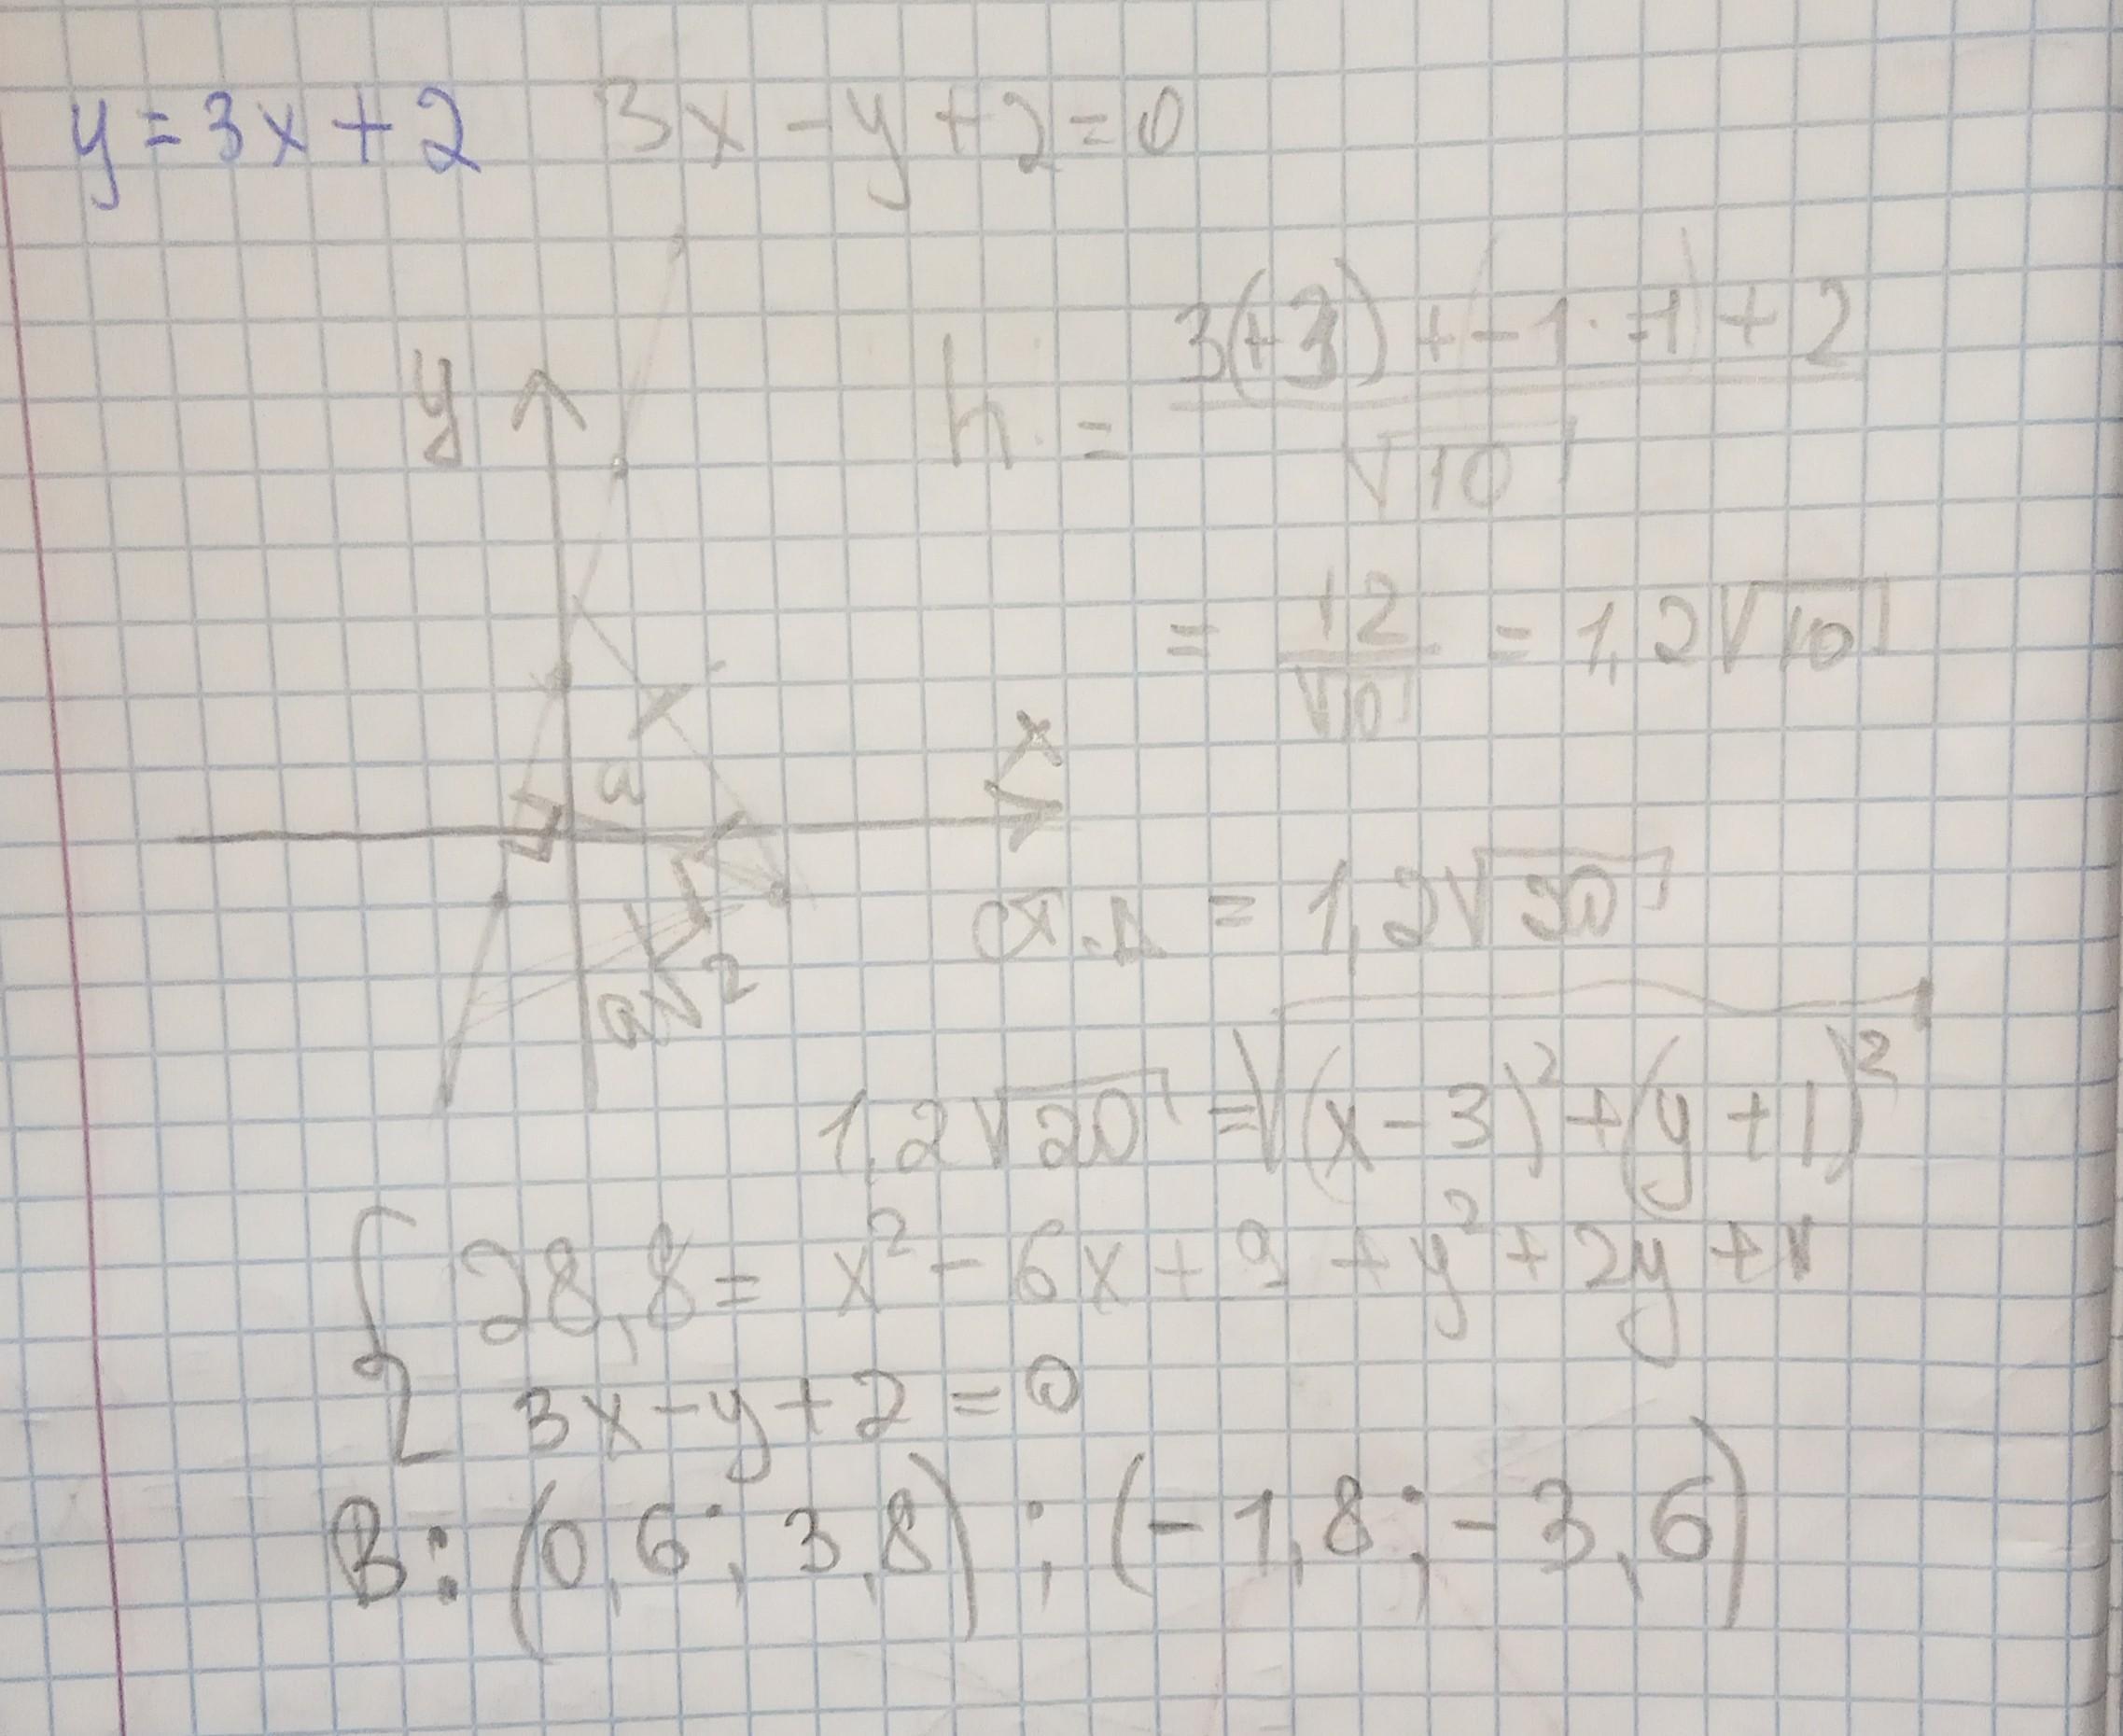 y = 3x + 2 3x - y + 2 = 0
h = (3(+3) + (-1 · -1) + 2) / √10
= 12/√10 = 1,2√10
y
x
a
a√2
= 1,2√20
1,2√20 = √((x - 3)² + (y + 1)²)
{ 28,8 = x² - 6x + 9 + y² + 2y + 1
3x - y + 2 = 0
B: (0,6; 3,8) ; (-1,8; -3,6)